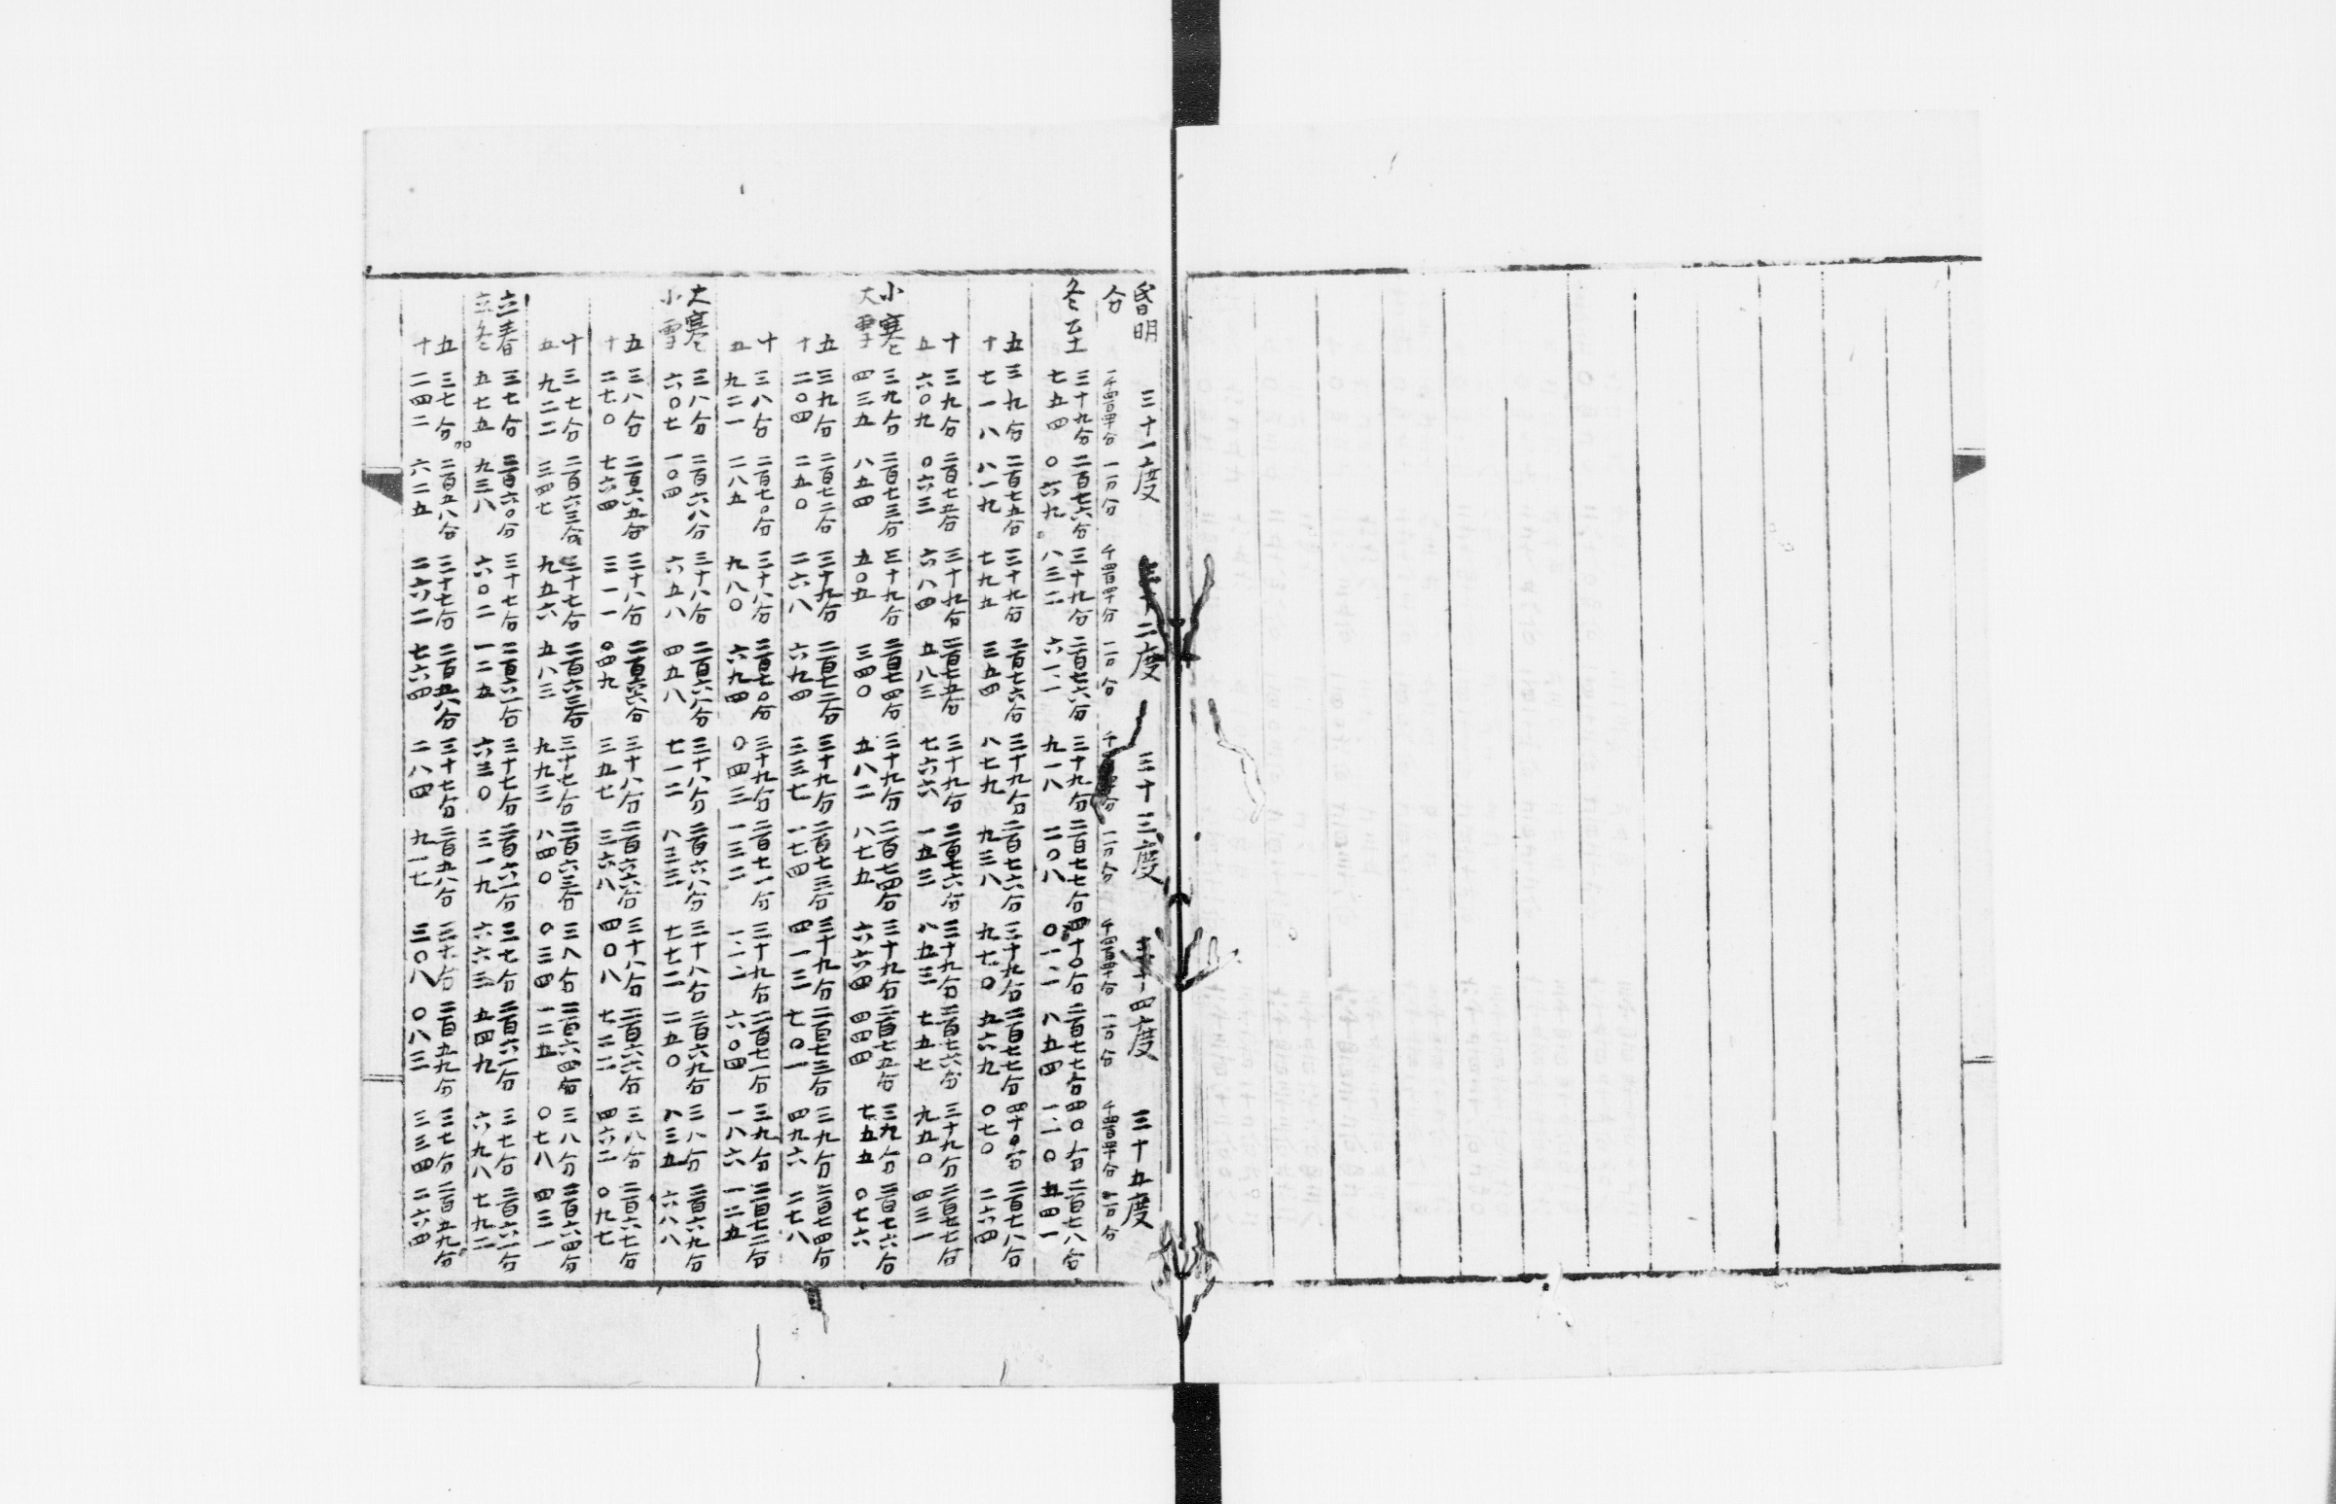 昏明 三十一度 三十二度 三十三度 三十四度 三十五度
分 千四百四十分 一百分 千四百四十分 一百分 千 分 一百分 千四百四十分 一百分 千四百四十分 一百分
冬至 三十九分 二百七六分 三十九分 二百七六分 三十九分 二百七七分 四十〇分 二百七七分 四〇分 二百七八分
七五四 〇六九 八三二 六一一 九一八 二〇八 〇一一 八五四 一一〇 五四一
五 三九分 二百七五分 三十九分 二百七六分 三十九分 二百七六分 三十九分 二百七七分 四十〇分 二百七八分
十 七一八 八一九 七九五 三五四 八七九 九三八 九七〇 五六九 〇七〇 二六四
十 三九分 二百七五分 三十九分 二百七五分 三十九分 二百七六分 三十九分 二百七六分 三十九分 二百七七分
五 六〇九 〇六三 六八四 五八三 七六六 一五三 八五三 七五七 九五〇 四三一
小寒 三九分 二百七三分 三十九分 二百七四分 三十九分 二百七四分 三十九分 二百七五分 三九分 二百七六分
大雪 四三五 八五四 五〇五 三四〇 五八二 八七五 六六四 四四四 七五五 〇七六
五 三九分 二百七二分 三十九分 二百七二分 三十九分 二百七三分 三十九分 二百七三分 三九分 二百七四分
十 二〇四 二五〇 二六八 六九四 三三七 一七四 四一三 七〇一 四九六 二七八
十 三八分 二百七〇分 三十八分 二百七〇分 三十九分 二百七一分 三十九分 二百七一分 三九分 二百七二分
五 九二一 二八五 九八〇 六九四 〇四三 一三二 一一二 六〇四 一八六 一二五
大寒 三八分 二百六八分 三十八分 二百六八分 三十八分 二百六八分 三十八分 二百六九分 三八分 二百六九分
小雪 六〇七 一〇四 六五八 四五八 七一二 八三三 七七二 二五〇 八三五 六八八
五 三八分 二百六五分 三十八分 二百六六分 三十八分 二百六六分 三十八分 二百六六分 三八分 二百六七分
十 二七〇 七六四 三一一 〇四九 三五七 三六八 四〇八 七二二 四六二 〇九七
十 三七分 二百六三分 三十七分 二百六三分 三十七分 二百六三分 三八分 二百六四分 三八分 二百六四分
五 九二二 三四七 九五六 五八三 九九三 八四〇 〇三四 一二五 〇七八 四三一
立春 三七分 二百六〇分 三十七分 二百六一分 三十七分 二百六一分 三七分 二百六一分 三七分 二百六一分
立冬 五七五 九三八 六〇二 一二五 六三〇 三一九 六六三 五四九 六九八 七九二
五 三七分 二百五八分 三十七分 二百五八分 三十七分 二百五八分 三十七分 二百五九分 三七分 二百五九分
十 二四二 六二五 二六二 七六四 二八四 九一七 三〇八 〇八三 三三四 二六四